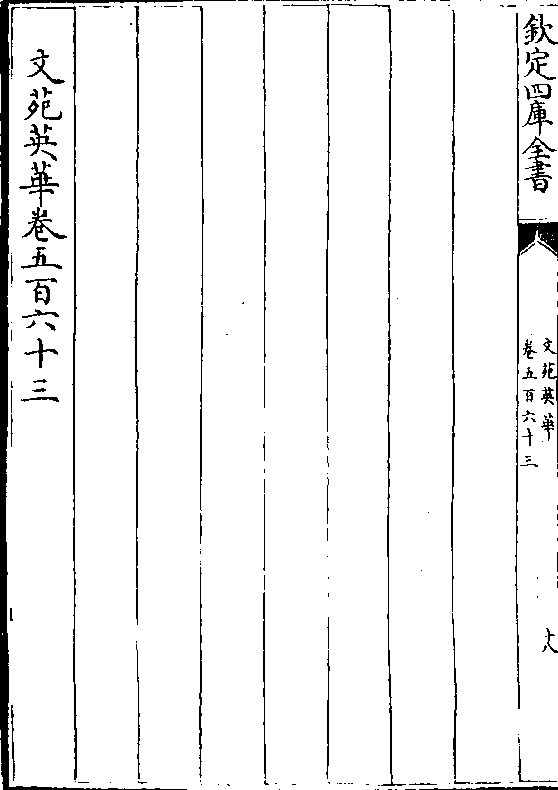 欽定四庫全書
文苑英華
卷五百六十三
文苑英華卷五百六十三